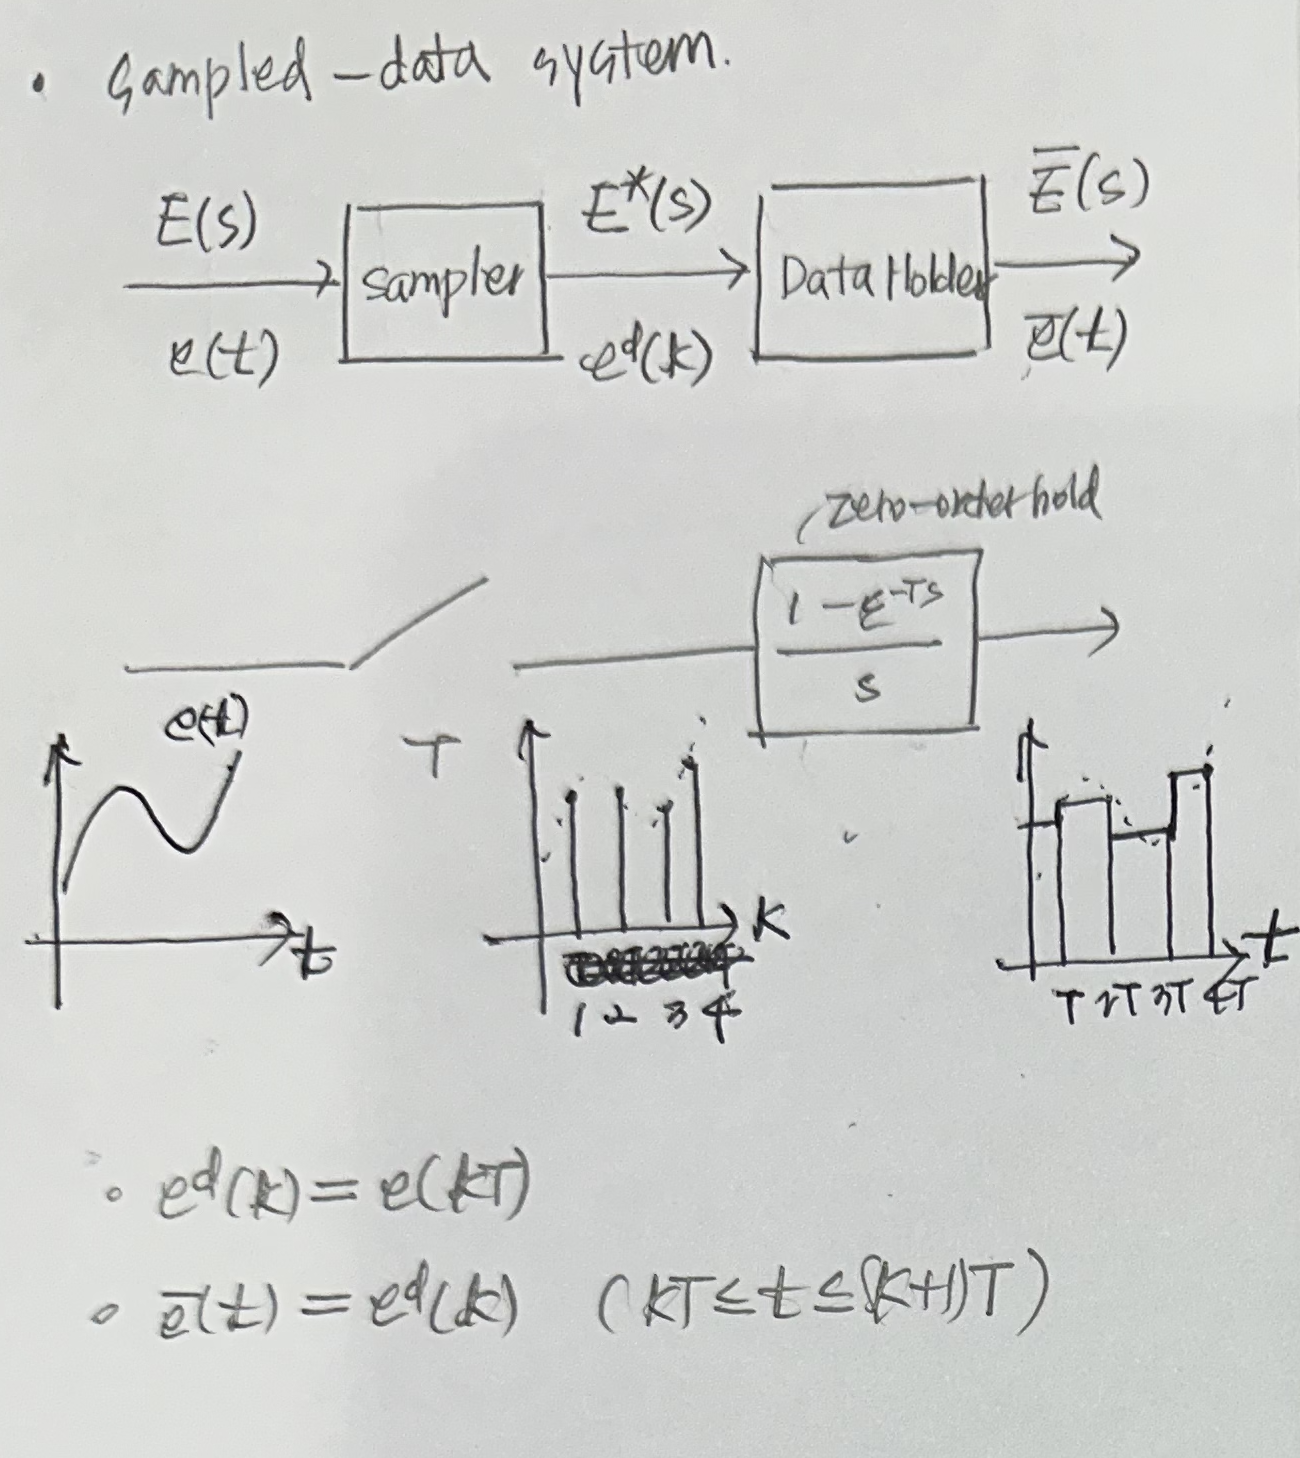 • Sampled-data system.
E(s) E*(s) E̅(s)
Sampler Data Holder
e(t) eᵈ(k) e̅(t)
zero-order hold
1 - ε⁻ᵀˢ
s
e(t)
T
k
t
t
1 2 3 4
T 2T 3T 4T
∘ eᵈ(k) = e(kT)
∘ e̅(t) = eᵈ(k) (kT ≤ t ≤ (k+1)T)